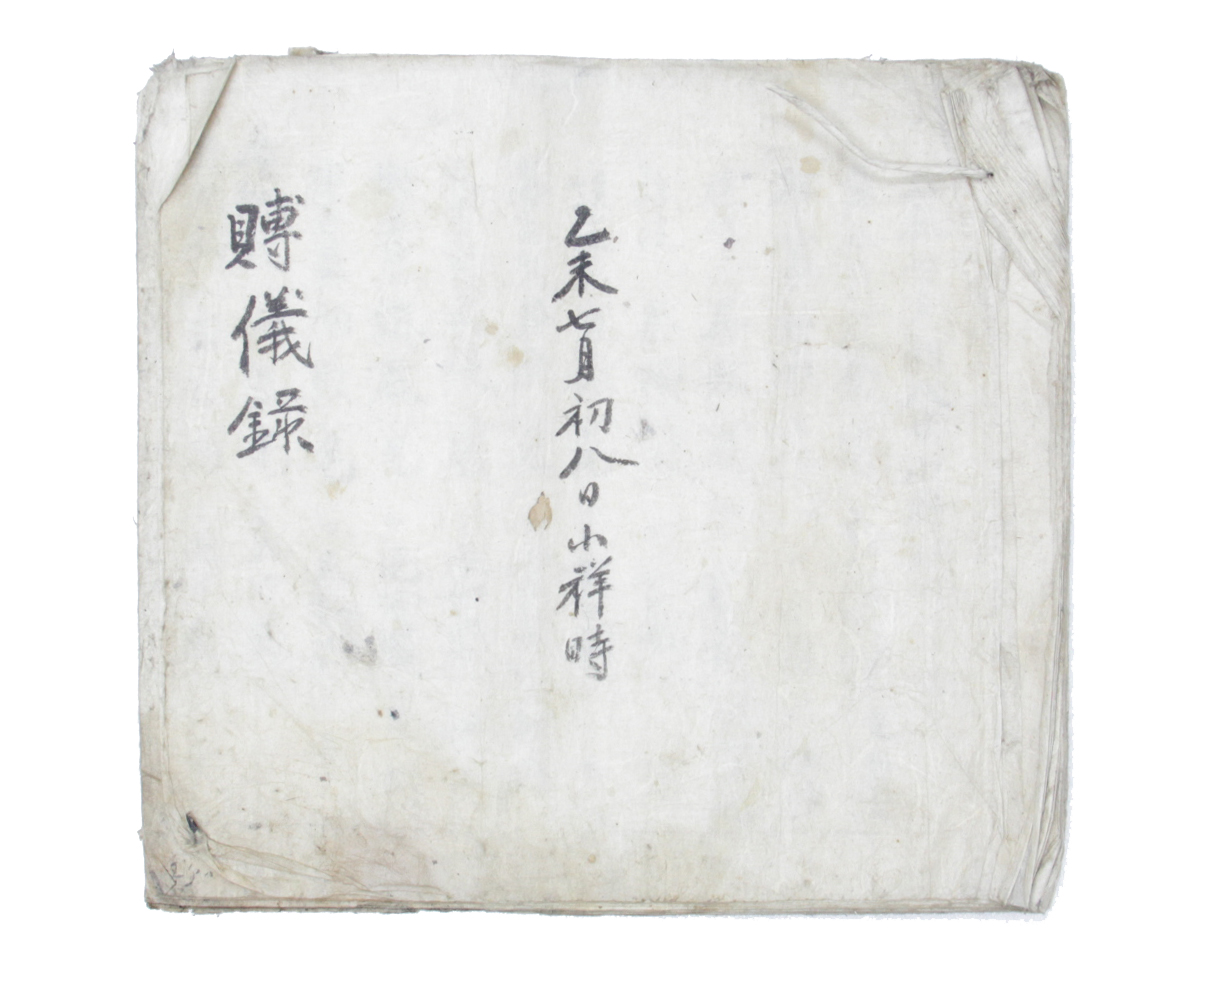 乙未七月初八日小祥時
賻儀錄